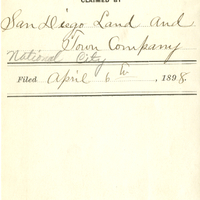 CLAIMED BY
San Diego Land and
Town Company
National City
Filed April 6th, 1898.